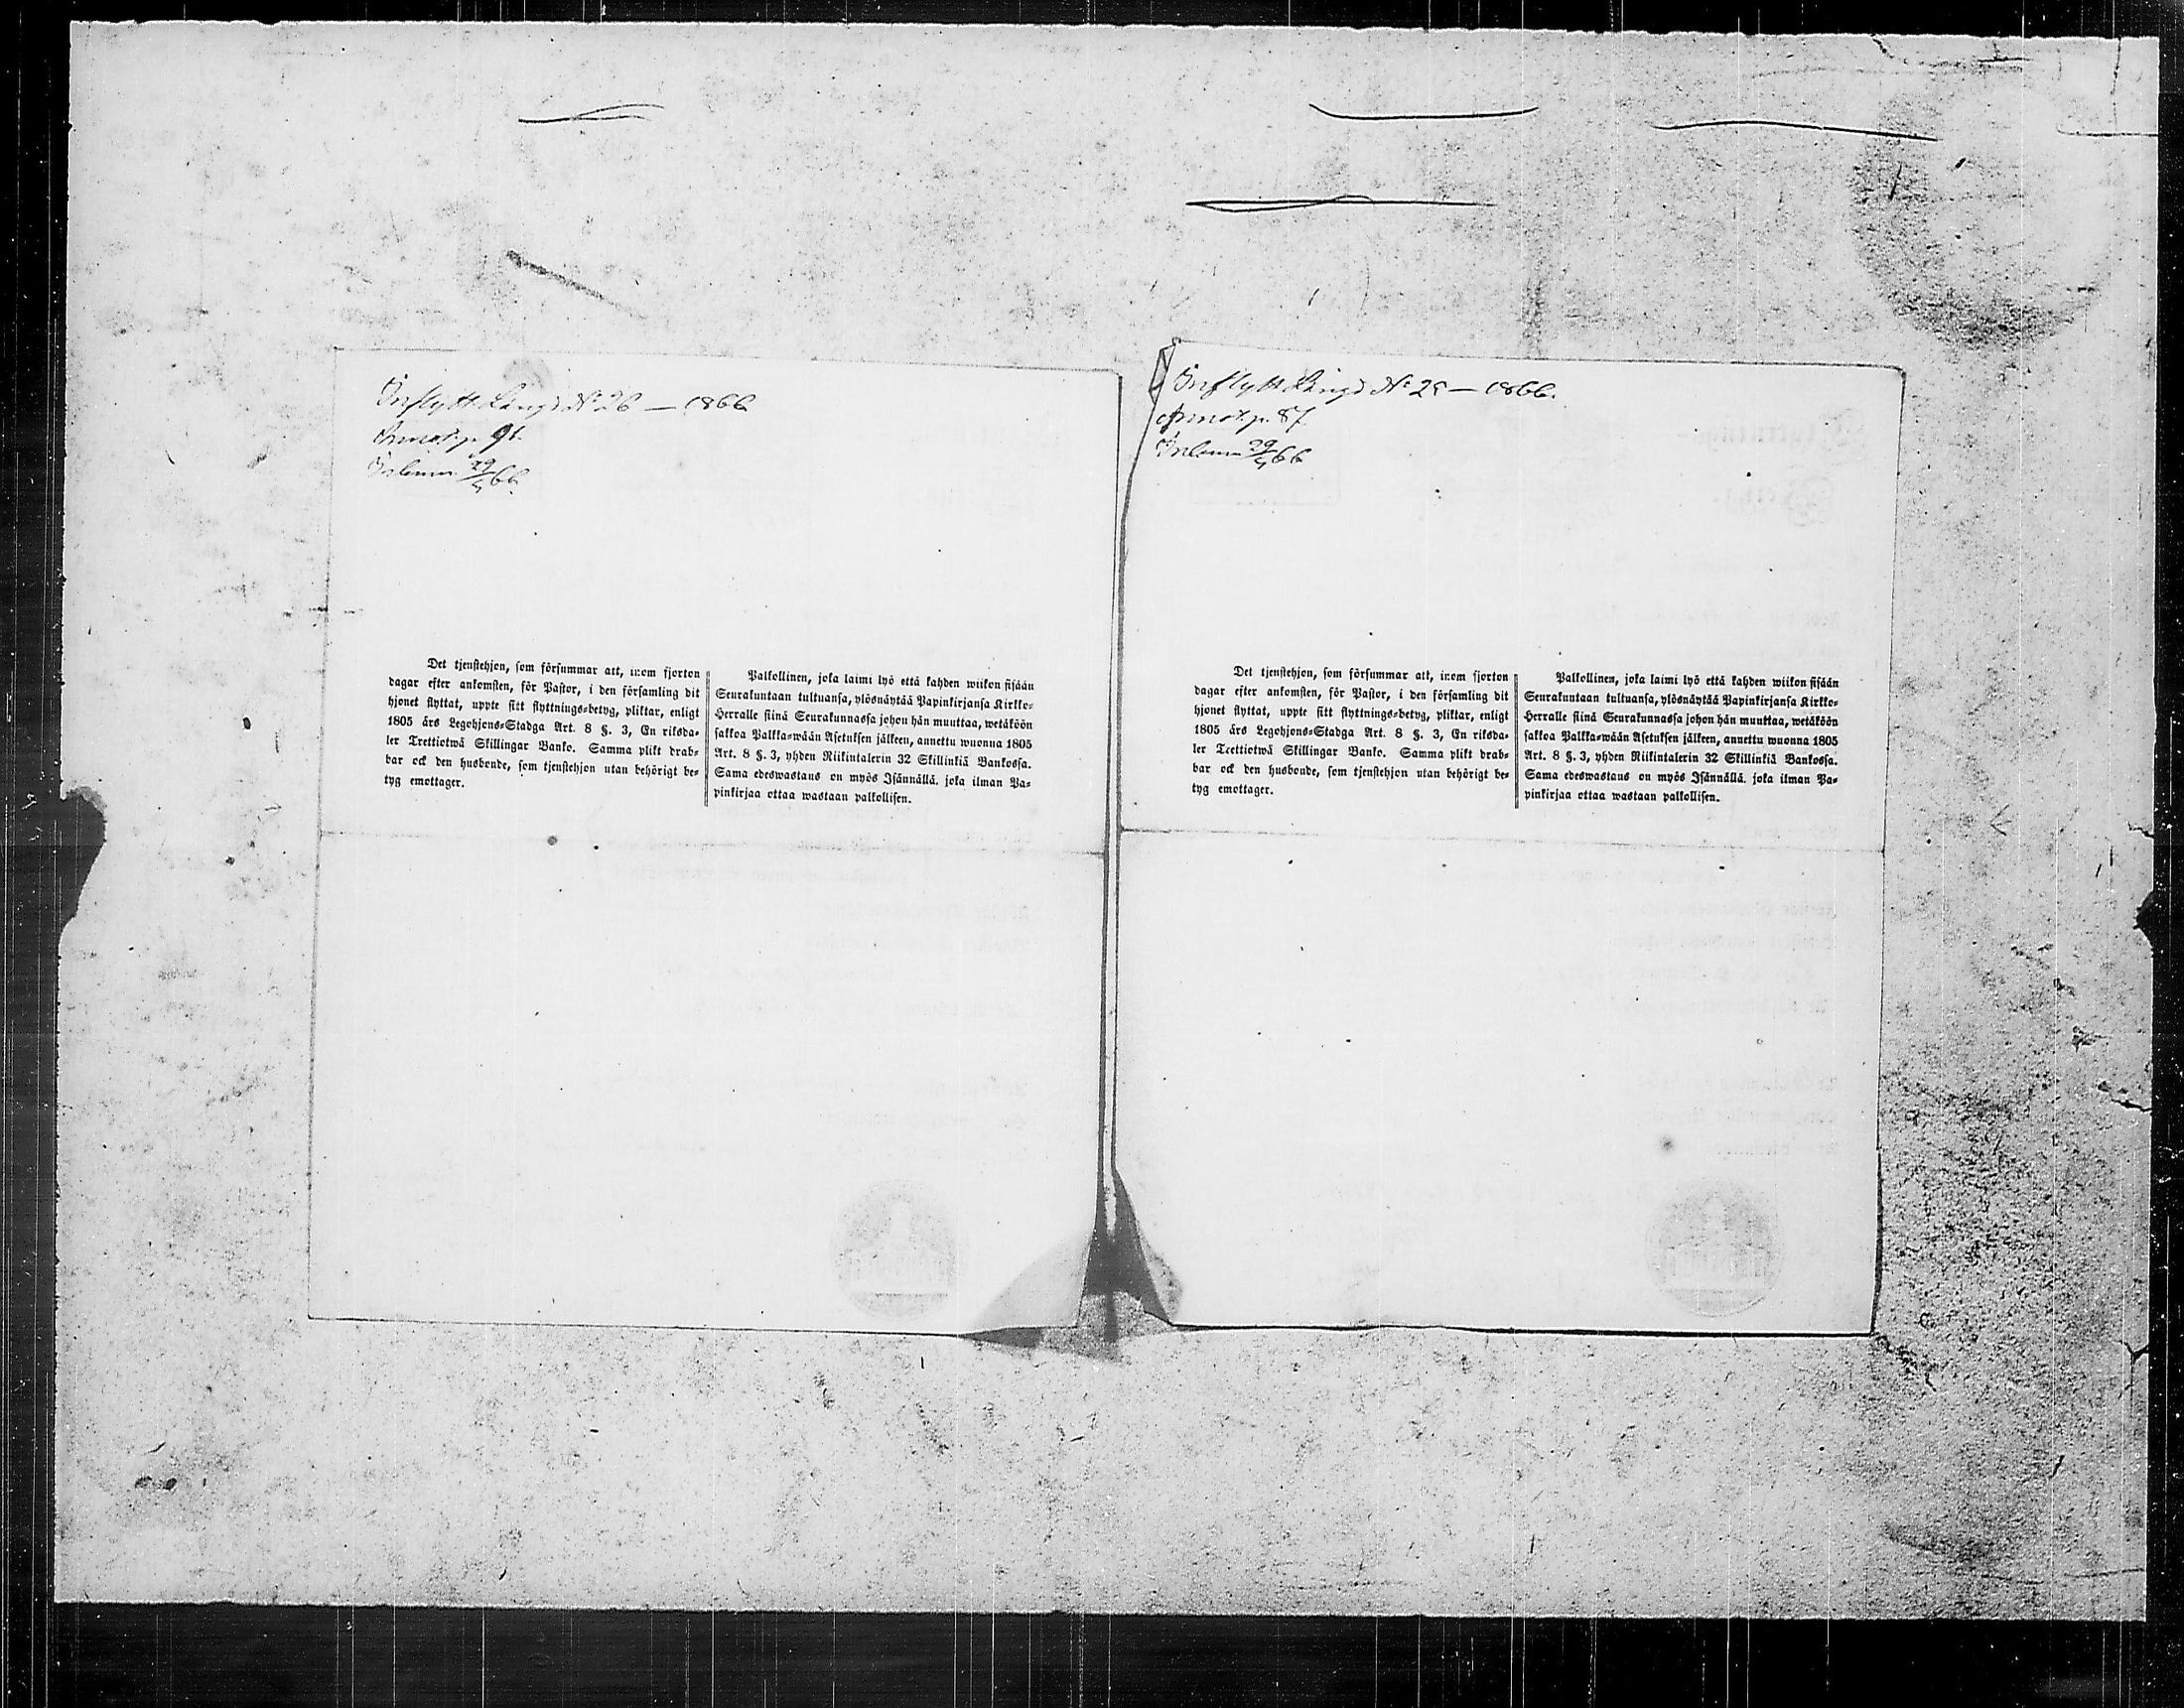 Inflytt. Längd Nº 26 — 1866
Annot. p. 91.
Inlemn. 29/5 66.
Det tjenstehjon, som försummar att, inom fjorton
dagar efter ankomsten, för Pastor, i den församling dit
hjonet flyttat, uppte sitt flyttnings-betyg, pliktar, enligt
1805 års Legohjons-Stadga Art. 8 §. 3, En riksda-
ler Trettiotwå Skillingar Banko. Samma plikt drab-
bar ock den husbonde, som tjenstehjon utan behörigt be-
tyg emottager.
Palkollinen, joka laimi lyö että kahden wiikon sisään
Seurakuntaan tultuansa, ylösnäytää Papinkirjansa Kirkko-
Herralle siinä Seurakunnassa johon hän muuttaa, wetäköön
sakkoa Palkka-wään Asetuksen jälkeen, annettu wuonna 1805
Art. 8 §. 3, yhden Riikintalerin 32 Skillinkiä Bankossa.
Sama edeswastaus on myös Isännällä. joka ilman Pa-
pinkirjaa ottaa wastaan palkollisen.
Inflytt. Längd Nº 25 — 1866.
Annot. p. 87
Inlemn. 29/5 66
Det tjenstehjon, som försummar att, inom fjorton
dagar efter ankomsten, för Pastor, i den församling dit
hjonet flyttat, uppte sitt flyttnings-betyg, pliktar, enligt
1805 års Legohjons-Stadga Art. 8 §. 3, En riksda-
ler Trettiotwå Skillingar Banko. Samma plikt drab-
bar ock den husbonde, som tjenstehjon utan behörigt be-
tyg emottager.
Palkollinen, joka laimi lyö että kahden wiikon sisään
Seurakuntaan tultuansa, ylösnäytää Papinkirjansa Kirkko-
Herralle siinä Seurakunnassa johon hän muuttaa, wetäköön
sakkoa Palkka-wään Asetuksen jälkeen, annettu wuonna 1805
Art. 8 §. 3, yhden Riikintalerin 32 Skillinkiä Bankossa.
Sama edeswastaus on myös Isännällä. joka ilman Pa-
pinkirjaa ottaa wastaan palkollisen.